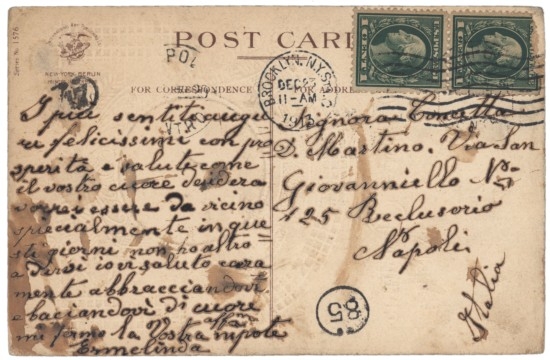 POST CARD
Series No. 1576
NEW YORK, BERLIN
FOR CORRESPONDENCE
FOR ADDRESS
POL
BROOKLYN, N.Y. STA.
DEC 23
11-AM
1 CENT 1
1 CENT 1
I più sentiti augu
ri felicissimi con pro
sperità e salute come
il vostro cuore desidera
vorrei essere da vicino
specialmente in que
sti giorni non ho altro
a dirvi io vi saluto cara
mente abbracciandovi
e baciandovi di cuore
mi fermo la vostra affma nipote
Ermelinda
Signora Concetta
D. Mastino, Via San
Giovanniello No
125 Beclusorio
Napoli
Italia
85